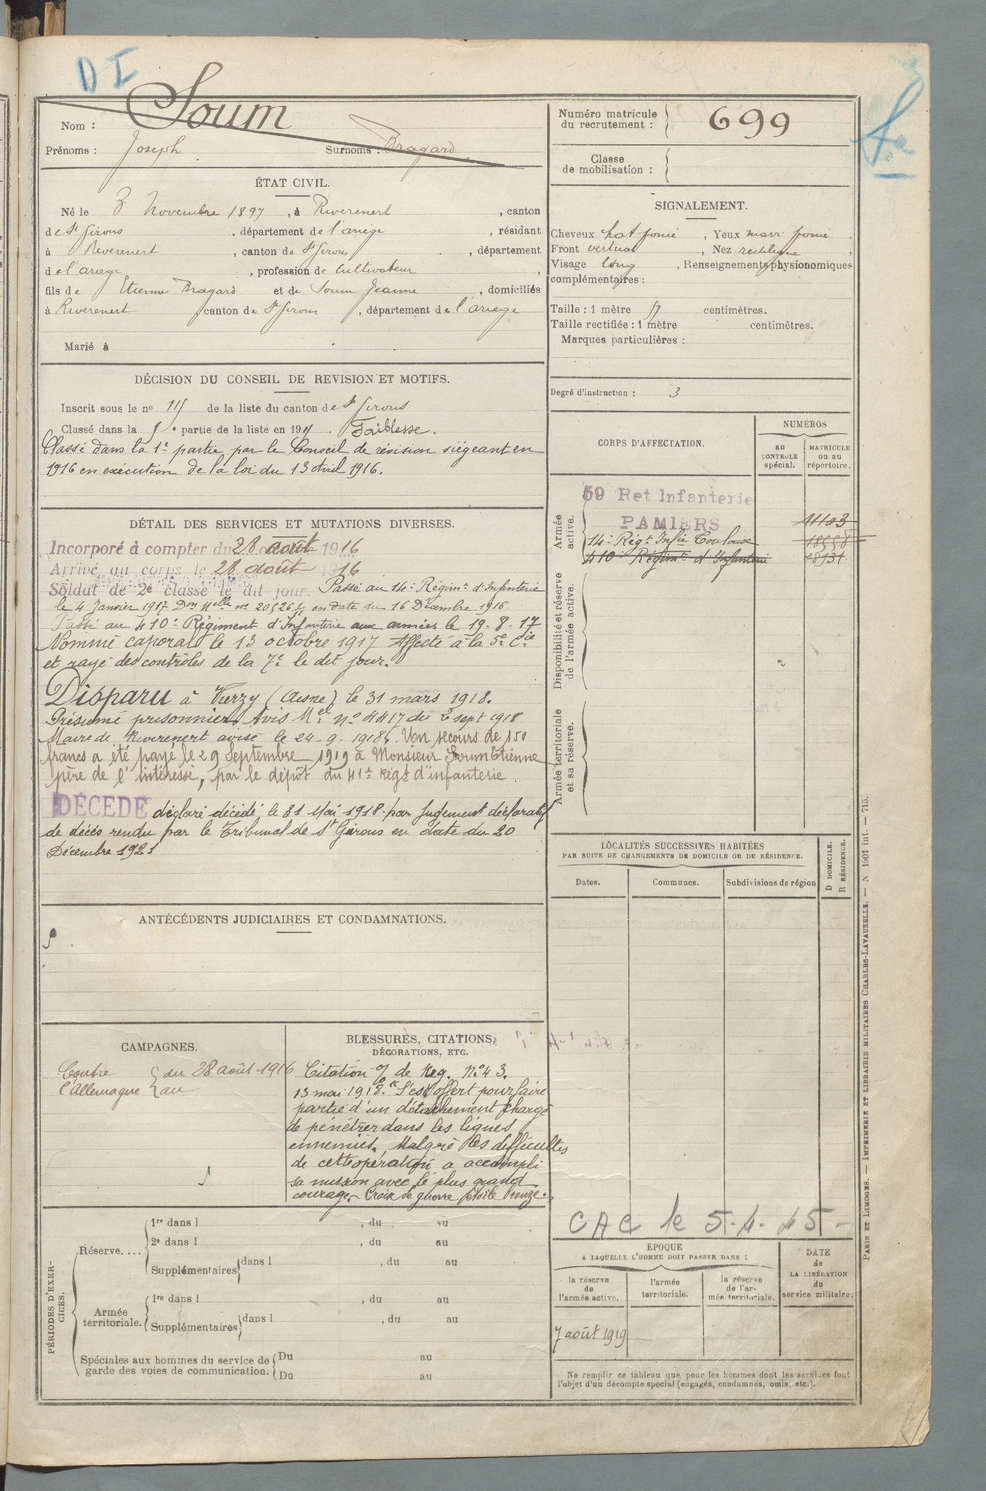 D I
Nom : Soum
Prénoms : Joseph Surnoms : Bragard
ÉTAT CIVIL.
Né le 3 Novembre 1897, à Riverenert, canton
de St Girons, département de l'ariège, résidant
à Riverenert, canton de St Girons, département
de l'ariège, profession de Cultivateur,
fils de Etienne Bragard et de Soum Jeanne, domiciliés
à Riverenert canton de St Girons, département de l'ariège
Marié à
DÉCISION DU CONSEIL DE REVISION ET MOTIFS.
Inscrit sous le no 115 de la liste du canton de St Girons
Classé dans la 5e partie de la liste en 191 . Faiblesse.
Classé dans la 1e partie par le Conseil de révision siégeant en
1916 en exécution de la loi du 13 Avril 1916.
DÉTAIL DES SERVICES ET MUTATIONS DIVERSES.
Incorporé à compter du 28 août 1916
Arrivé au corps le 28 août 1916
Soldat de 2e classe le dit jour. Passé au 14e Régimt d'Infanterie
le 4 Janvier 1917 Don Melle no 20526 en date du 16 Décembre 1916.
Passé au 410e Régiment d'Infanterie aux armées le 19-8-17
Nommé caporal le 13 octobre 1917 Affecté à la 5e Cie
et rayé des contrôles de la 7e le dit jour.
Disparu à Vierzy (Aisne) le 31 mars 1918.
Présumé prisonnier. Avis Mel No 4417 du 2 sept 1918
Maire de Riverenert avisé le 24-9-1918. Un secours de 150
francs a été payé le 29 Septembre 1919 à Monsieur Soum Etienne
père de l'intéressé, par le dépôt du 41e Régt d'infanterie.
DÉCÉDÉ déclaré décédé le 31 Mai 1918 par Jugement déclaratif
de décès rendu par le Tribunal de St Girons en date du 20
Décembre 1921
ANTÉCÉDENTS JUDICIAIRES ET CONDAMNATIONS.
CAMPAGNES.
Contre du 28 août 1916
l'Allemagne au
BLESSURES, CITATIONS,
DÉCORATIONS, ETC.
Citation O/ de Reg. No 43.
13 mai 1918. "S'est offert pour faire
partie d'un détachement chargé
de pénétrer dans les lignes
ennemies. Malgré les difficultés
de cette opération a accompli
sa mission avec le plus grand
courage. Croix de guerre étoile bronze.
PÉRIODES D'EXERCICES.
Réserve.... 1re dans l , du au
2e dans l , du au
Supplémentaires dans l , du au
Armée territoriale. 1re dans l , du au
Supplémentaires dans l , du au
Spéciales aux hommes du service de garde des voies de communication. Du au
Du au
Numéro matricule du recrutement : 699
Classe de mobilisation :
SIGNALEMENT.
Cheveux chat foncé, Yeux marr foncé,
Front vertical, Nez rectiligne,
Visage long, Renseignements physionomiques
complémentaires :
Taille : 1 mètre 57 centimètres.
Taille rectifiée : 1 mètre centimètres.
Marques particulières :
Degré d'instruction : 3
CORPS D'AFFECTATION.
NUMÉROS
AU CONTROLE spécial.
MATRICULE OU AU répertoire.
Armée active.
59 Ret Infanterie
PAMIERS 11103
14e Régt Infie Toulouse 18558
410e Régimt d'Infanterie
Disponibilité et réserve de l'armée active.
Armée territoriale et sa réserve.
LOCALITÉS SUCCESSIVES HABITÉES
PAR SUITE DE CHANGEMENTS DE DOMICILE OU DE RÉSIDENCE.
Dates.
Communes.
Subdivisions de région
D DOMICILE.
R RÉSIDENCE.
CAC le 5-4-45-
ÉPOQUE
A LAQUELLE L'HOMME DOIT PASSER DANS :
la réserve de l'armée active.
l'armée territoriale.
la réserve de l'armée territoriale.
DATE de LA LIBÉRATION du service militaire.
7 août 1919
Ne remplir ce tableau que pour les hommes dont les services font
l'objet d'un décompte spécial (engagés, condamnés, omis, etc.).
PARIS ET LIMOGES. — IMPRIMERIE ET LIBRAIRIE MILITAIRES CHARLES-LAVAUZELLE. — N 1901 int. — 715.